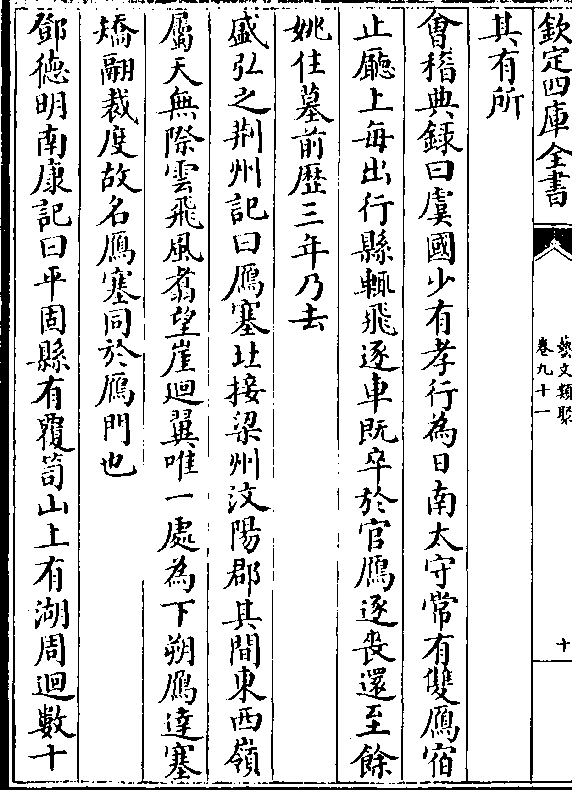 欽定四庫全書
藝文類聚
卷九十一
十
其有所
會稽典錄曰虞國少有孝行為日南太守常有雙鴈宿
止廳上每出行縣輒飛逐車既卒於官鴈逐喪還至餘
姚住墓前歴三年乃去
盛弘之荆州記曰鴈塞北接梁州汶陽郡其間東西嶺
屬天無際雲飛風翥望崖迴翼唯一處為下朔鴈達塞
矯翮裁度故名鴈塞同於鴈門也
鄧德明南康記曰平固縣有覆笥山上有湖周迴數十